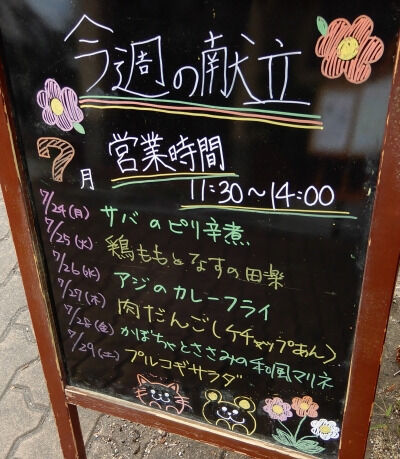 今週の献立
7月 営業時間
11:30～14:00
7/24(月) サバのピリ辛煮
7/25(火) 鶏ももとなすの田楽
7/26(水) アジのカレーフライ
7/27(木) 肉だんご(ケチャップあん)
7/28(金) かぼちゃとささみの和風マリネ
7/29(土) プルコギサラダ